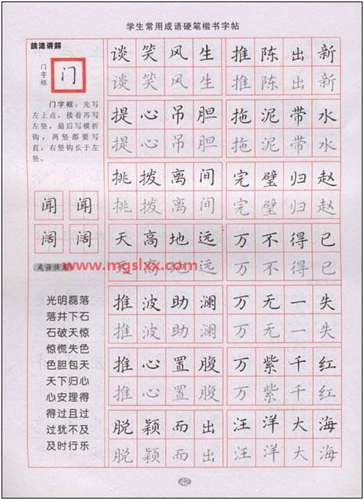 学生常用成语硬笔楷书字帖
技法讲解
门字框
门
门字框：先写
左上点，接着再写
左竖，最后写横折
钩，两竖都要写
直，右竖钩长于左
竖。
闻 闻
阔 阔
光明磊落
落井下石
石破天惊
惊慌失色
色胆包天
天下归心
心安理得
得过且过
过犹不及
及时行乐
谈笑风生 推陈出新
谈笑风生 推陈出新
提心吊胆 拖泥带水
提心吊胆 拖泥带水
挑拨离间 完璧归赵
挑拨离间 完璧归赵
天高地远 万不得已
天高地远 万不得已
www.mgslxx.com
推波助澜 万无一失
推波助澜 万无一失
推心置腹 万紫千红
推心置腹 万紫千红
脱颖而出 汪洋大海
脱颖而出 汪洋大海